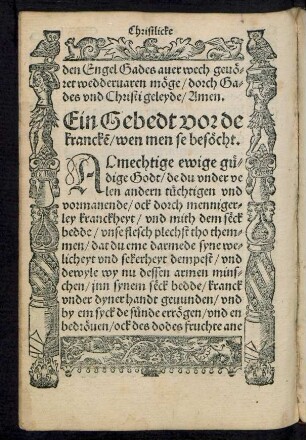 Christlicke
den Engel Gades auer wech geuö-
ret wedderuaren möge / dorch Ga-
des vnd Christi geleyde / Amen.
Ein Gebedt vor de
krancke͂ / wen men se besöcht.
ALmechtige ewige gü-
dige Godt / de du vnder ve
len andern tüchtigen vnd
vormanende / ock dorch menniger-
ley kranckheyt / vnd mith dem seck
bedde / vnse flesch plechst tho them-
men / dat du eme darmede syne we-
licheyt vnd sekerheyt dempest / vnd
dewyle wy nu dessen armen min-
schen / jnn synem seck bedde / kranck
vnder dyner handt geuunden / vnd
by em syck de sünde errögen / vnd en
bedröuen / ock des dodes fruchte ane